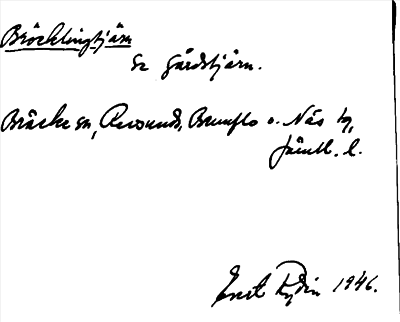 Bröcklingtjärn
se Gårdstjärn.
Bräcke sn, Revsunds, Brunflo o. Näs tg,
Jämtl. l.
Erset Rydin 1946.